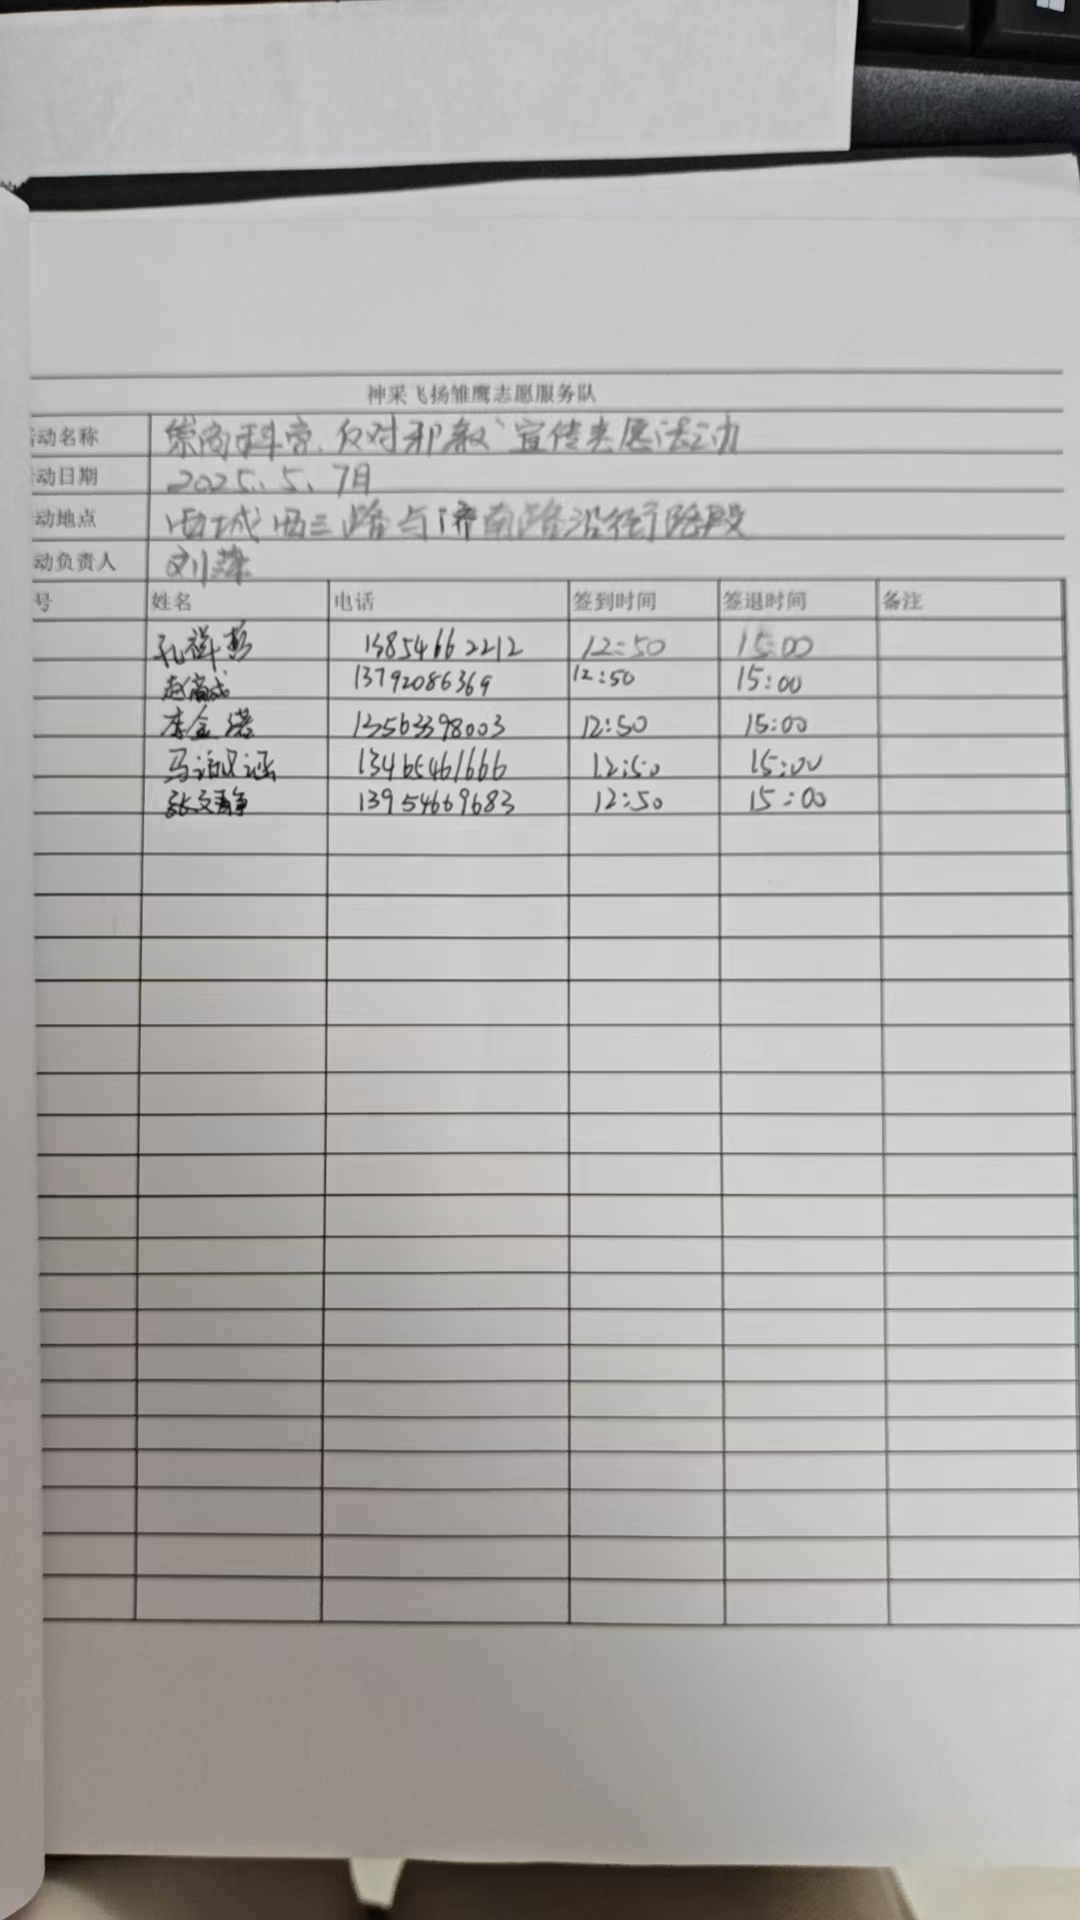 神采飞扬雏鹰志愿服务队
活动名称 崇尚科学、反对邪教"宣传志愿活动
动日期 2025、5、7月
动地点 西城西三路与济南路沿街路段
动负责人 刘萍
号 姓名 电话 签到时间 签退时间 备注
孔祥彭 13854662212 12:50 15:00
赵高成 13792086369 12:50 15:00
李金诺 13563398003 12:50 15:00
马涵 13465461666 12:50 15:00
张文静 13954669683 12:50 15:00